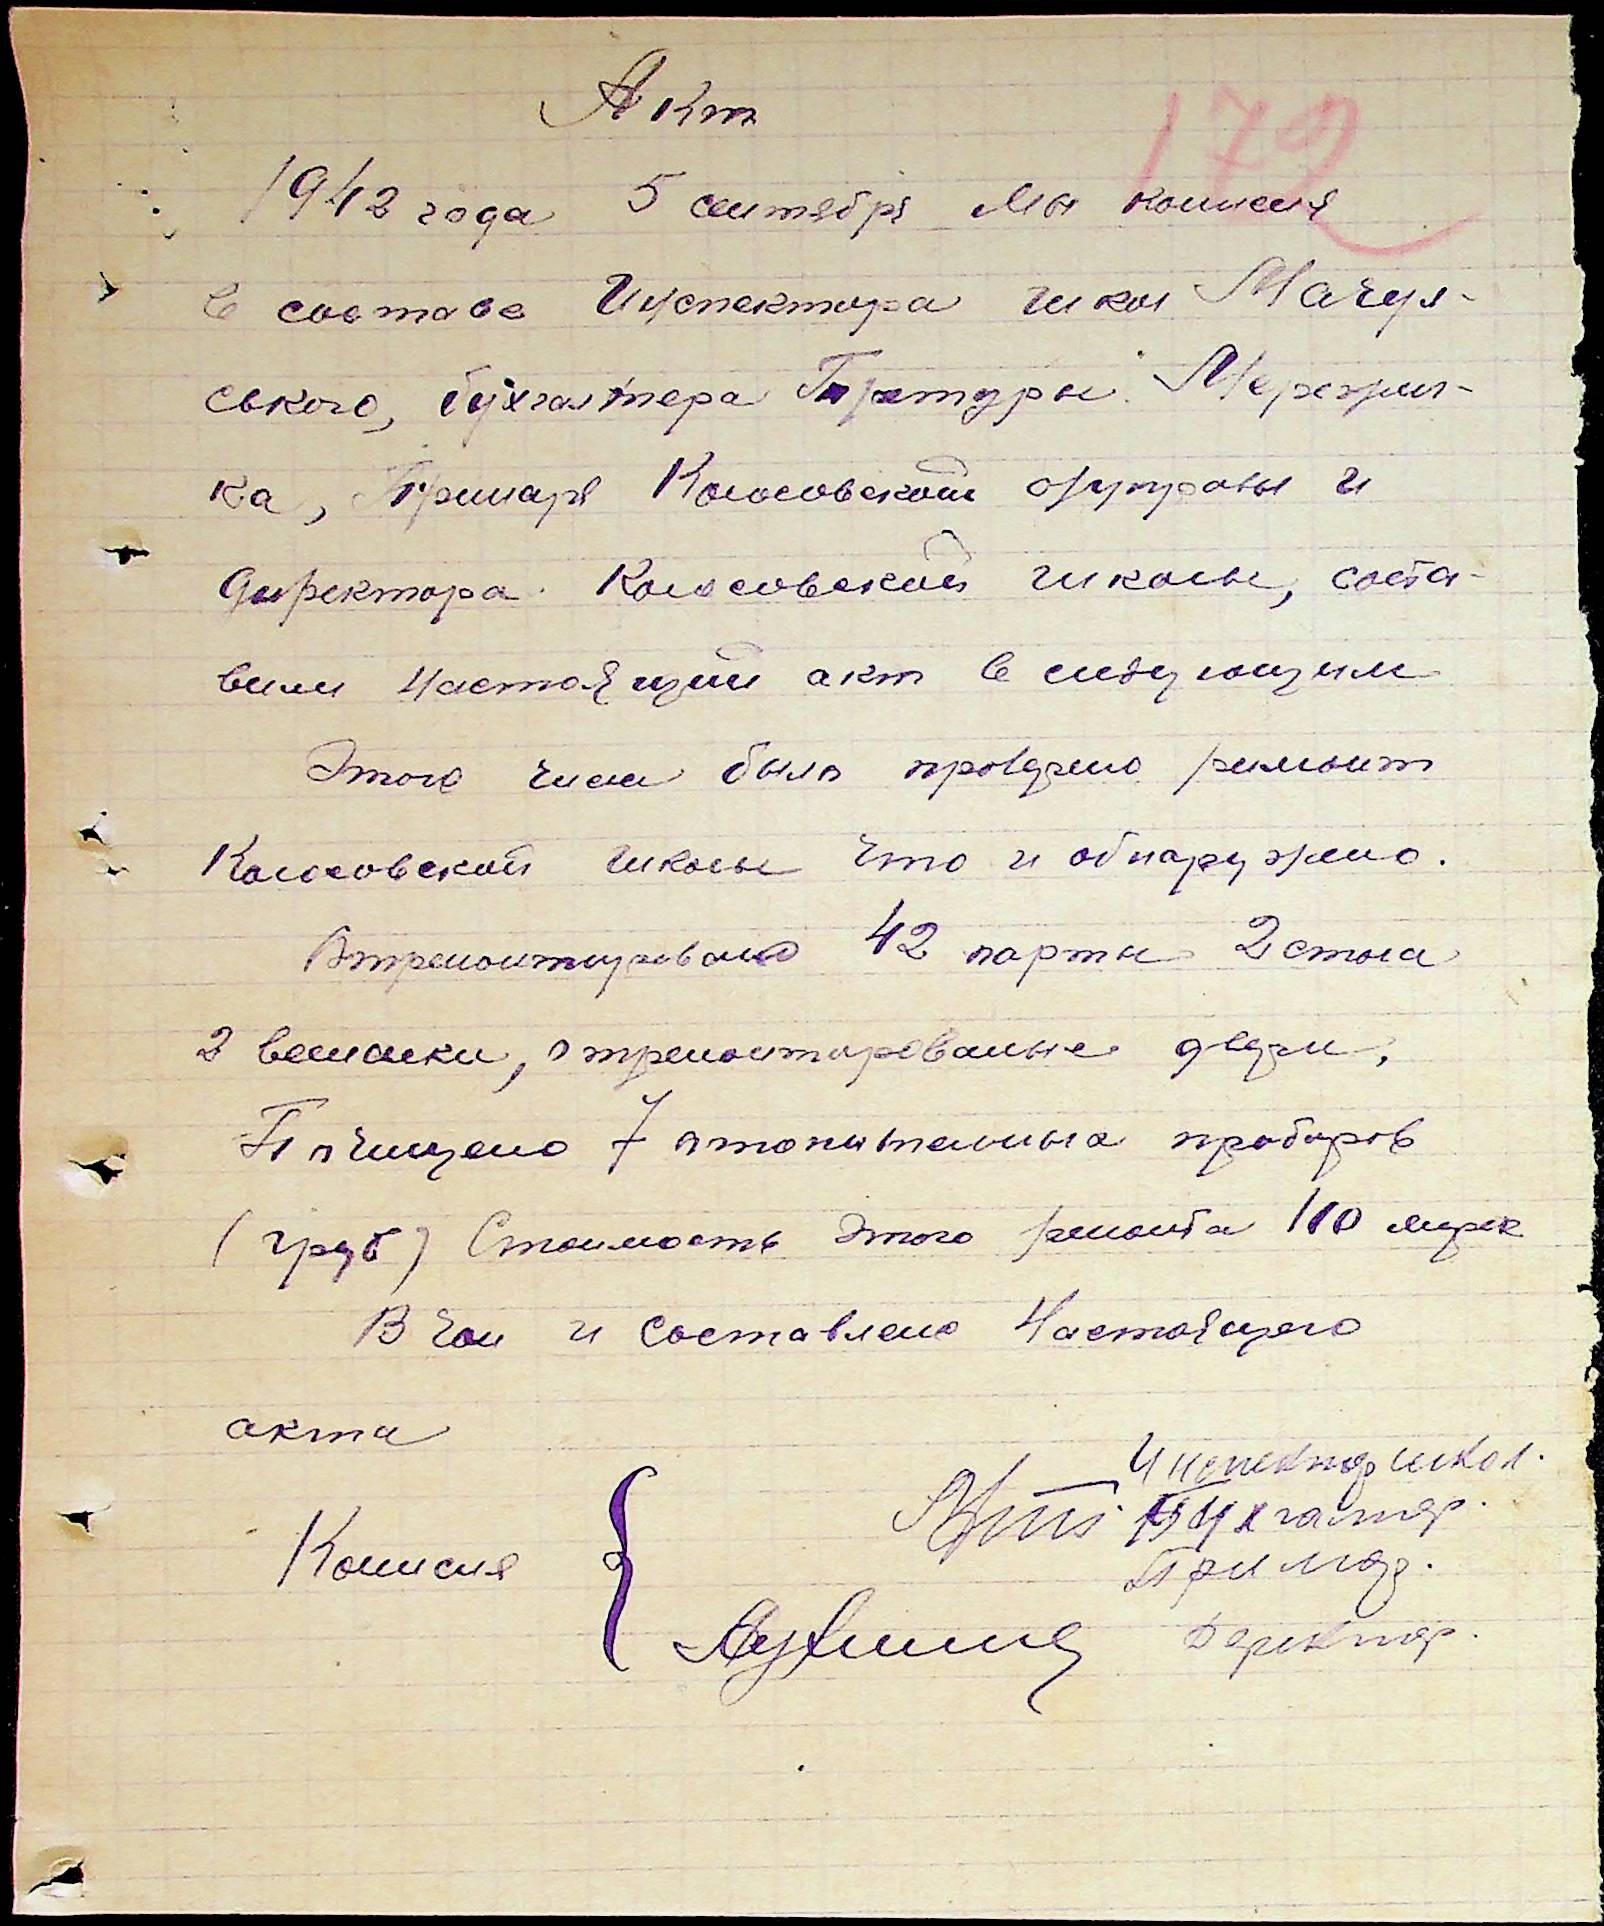 Акт
172
1942 года 5 сентября Мы комисия
в составе Инспектора школ Мачул-
ського, бухгалтера Претуры Мережил-
ка, Примаря Колосовской управы и
директора Колосовской школы, соста-
вили настоящий акт в следующим
Этого числа было проведено ремонт
Колосовской школы что и обнаружено.
Отремонтировано 42 парты 2 стола
2 вешалки, отремонтированые двери,
Почищено 7 отопительных проборов
(груб) Стоимость этого ремонта 110 марк
В чом и составлено настоящего
акта
Инспектор школ.
Бухгалтер.
Комисия
Примар.
Деректор.